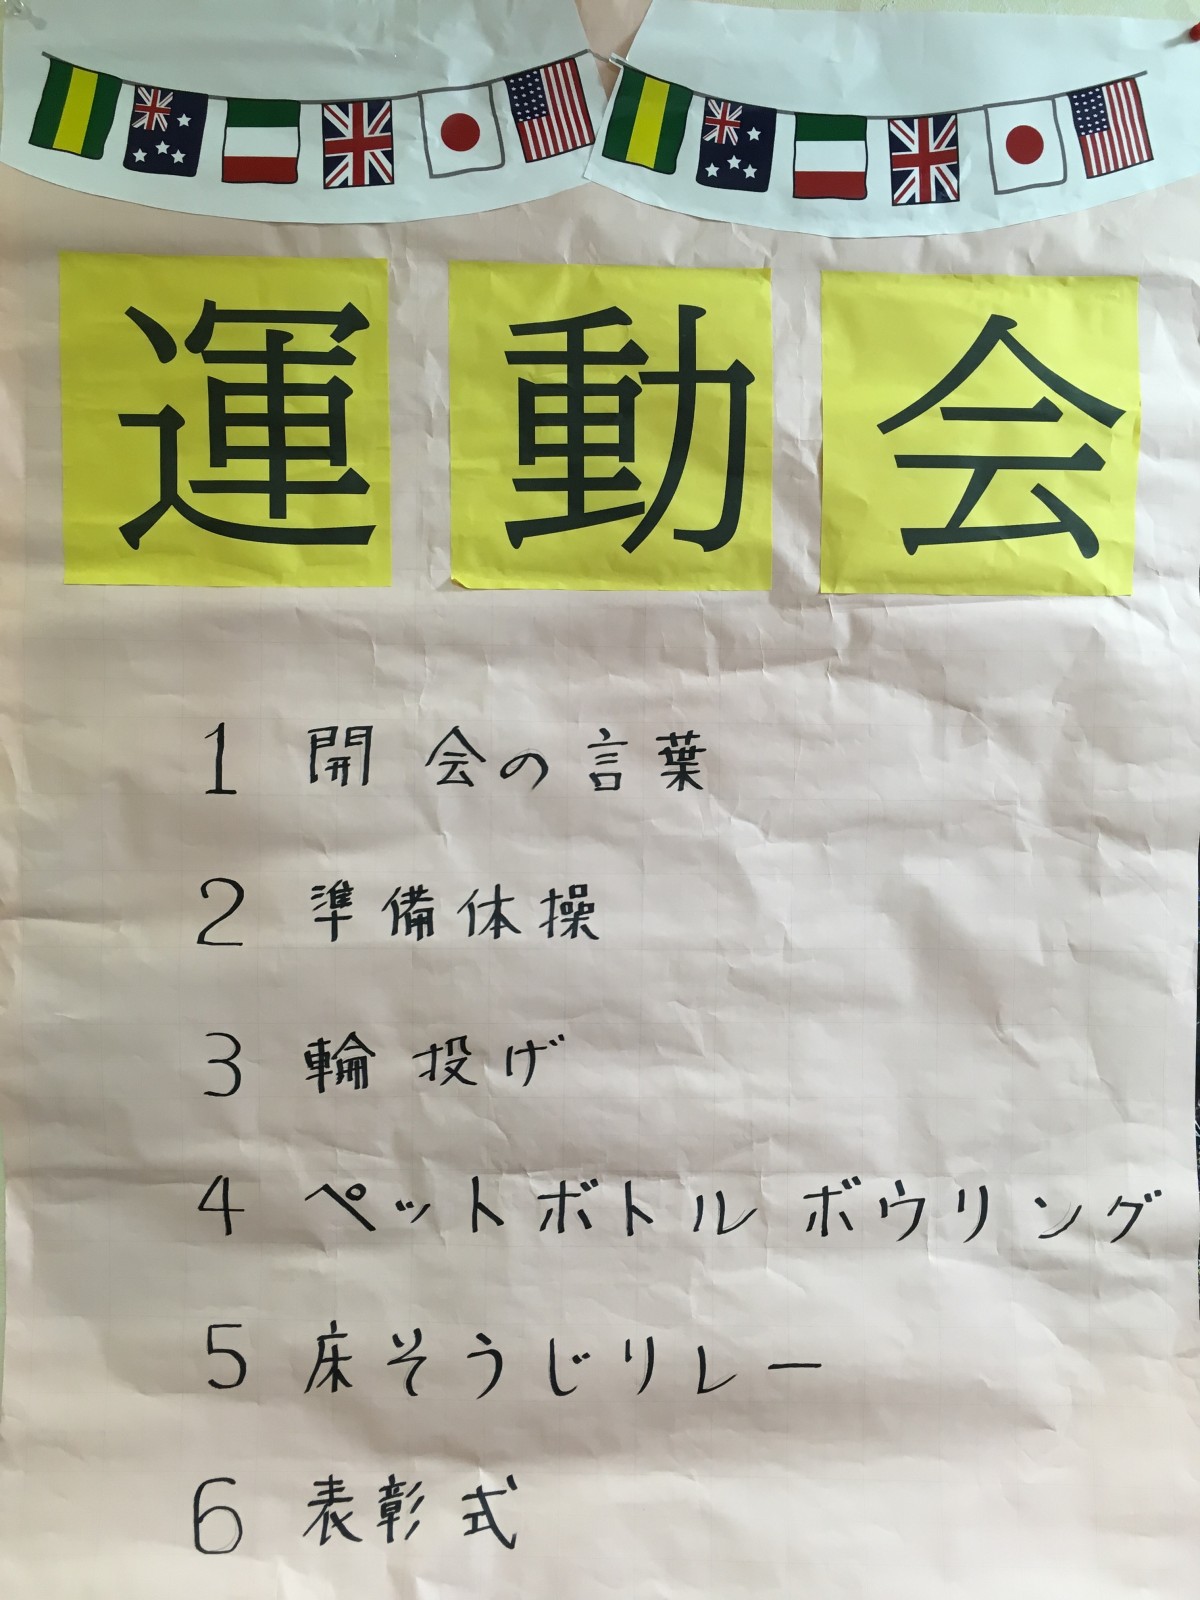 運動会
1 開会の言葉
2 準備体操
3 輪投げ
4 ペットボトルボウリング
5 床そうじリレー
6 表彰式